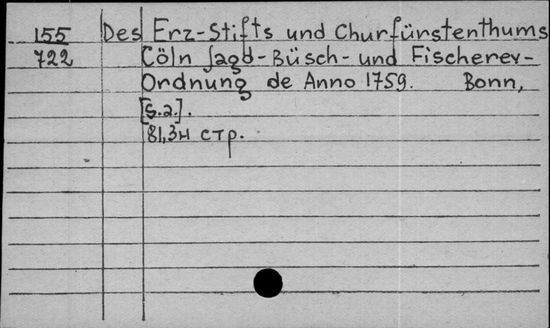 155 Des Erz-Stifts und Churfürstenthums
722 Cöln Jagd-Büsch- und Fischerey-
Ordnung de Anno 1759. Bonn,
[s.a.].
81,3н стр.